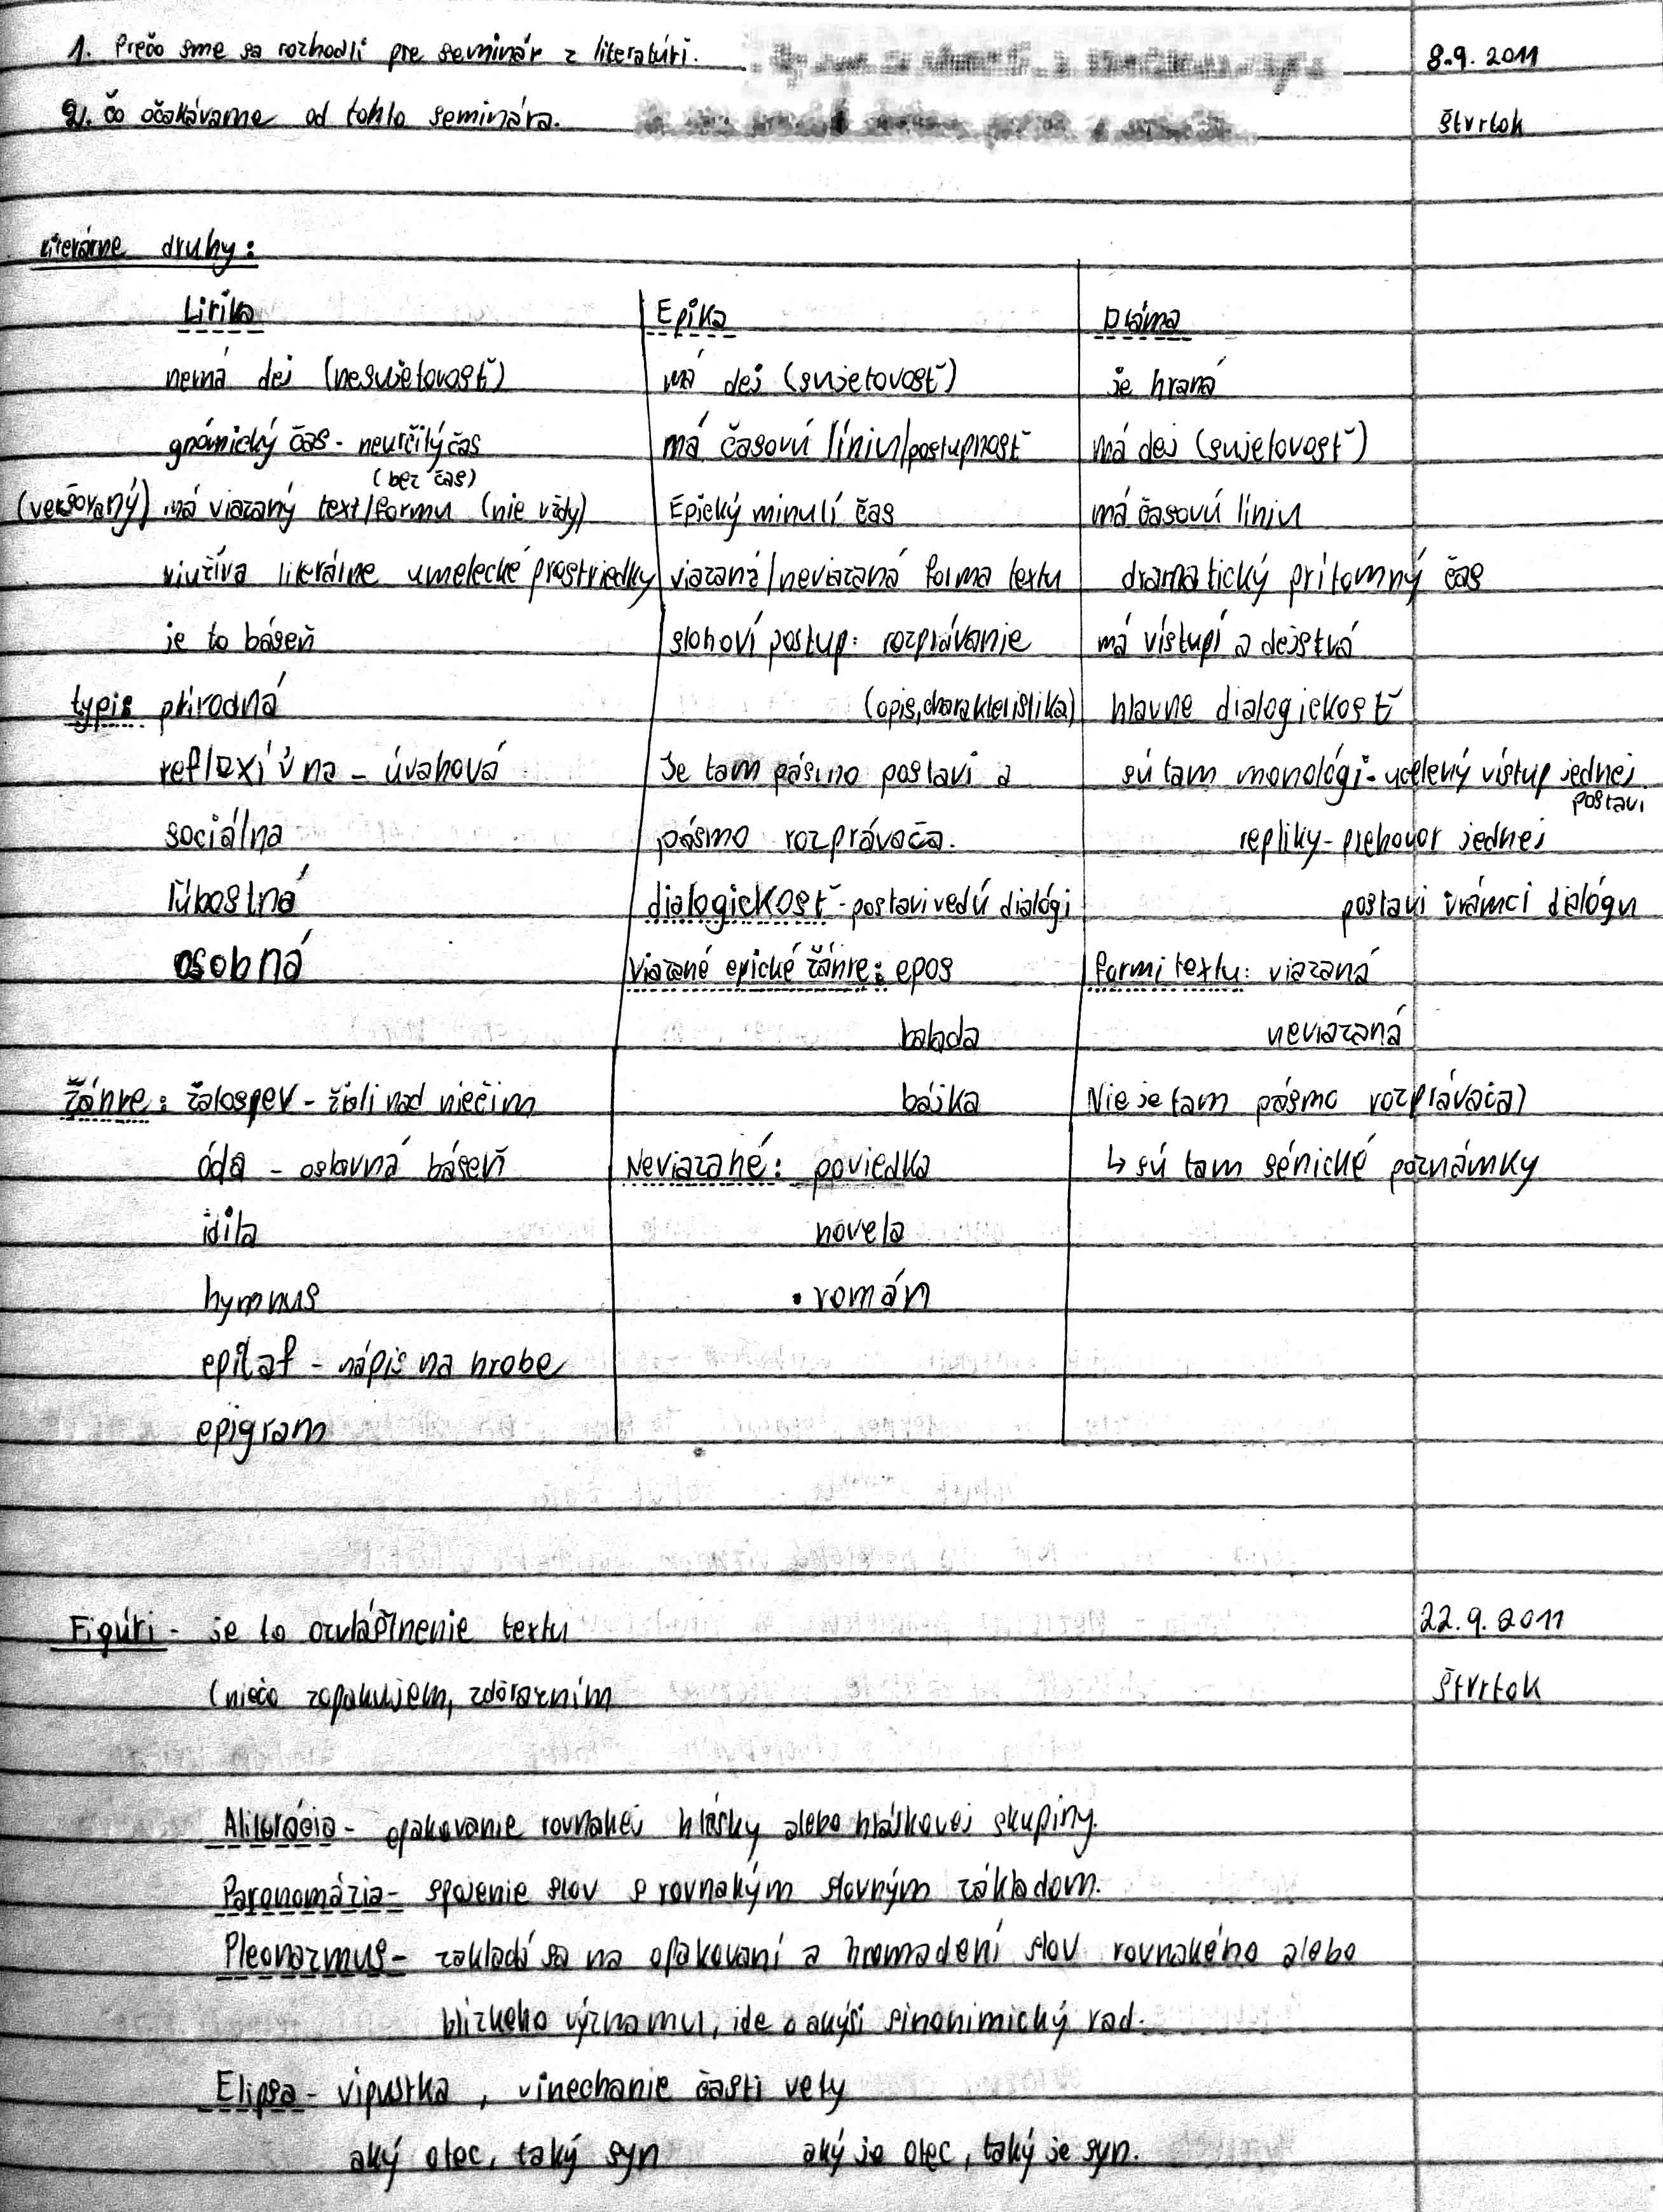 1. Prečo sme sa rozhodli pre seminár z literatúri. 8.9. 2011
2. čo očakávame od tohto seminára. štvrtok
Literárne druhy:
Lirika Epika Dráma
nemá dej (nesujetovosť) má dej (sujetovosť) je hraná
gnómický čas - neurčitý čas má časovú líniu/postupnosť má dej (sujetovosť)
(bez čas)
(veršovaný) má viazaný text/formu (nie vždy) Epický minulí čas má časovú líniu
viužíva literárne umelecké prostriedky viazaná/neviazaná forma textu dramatický prítomný čas
je to báseň slohoví postup: rozprávanie má vístupí a dejstvá
typi: prírodná (opis, charakteristika) hlavne dialogickosť
reflexívna - úvahová Je tam pásmo postaví a sú tam monológi - ucelený vístup jednej
postavi
sociálna pásmo rozprávača. repliky - prehovor jednej
ľúbostná dialogickosť - postavi vedú dialógi postavi vrámci dialógu
osobná Viazané epické žánre: epos formi textu: viazaná
balada neviazaná
žánre: žalospev - žiali nad niečim bájka Nie je tam pásmo rozprávača)
óda - oslavná báseň Neviazané: poviedka ↳ sú tam sénické poznámky
idila novela
hymnus • román
epitaf - nápis na hrobe
epigram
Figúri - je to ozvláštnenie textu 22.9.2011
(niečo zopakujem, zdôrazním štvrtok
Aliterácia - opakovanie rovnakej hlásky alebo hláskovej skupiny.
Paronomázia - spojenie slov s rovnakým slovným základom.
Pleonazmus - zakladá sa na opakovaní a hromadení slov rovnakého alebo
blízkeho významu, ide o akýsi sinonimický rad.
Elipsa - vipustka, vinechanie časti vety
aký otec, taký syn aký je otec, taký je syn.